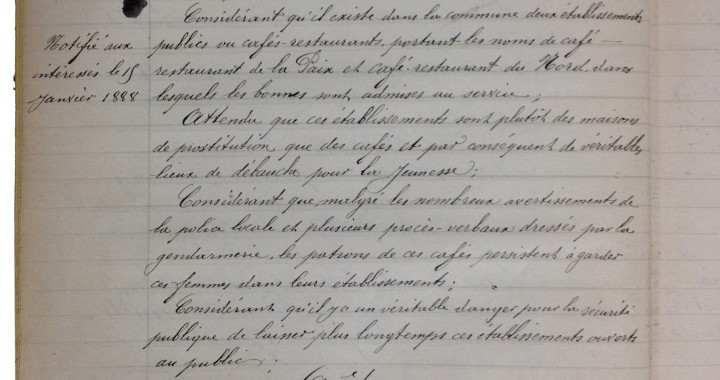 Considérant qu'il existe dans la commune deux établissements
publics ou cafés-restaurants, portant les noms de café-
restaurant de la Paix et café-restaurant du Nord, dans
lesquels les bonnes sont admises au service;
Attendu que ces établissements sont plutôt des maisons
de prostitution que des cafés et par conséquent de véritables
lieux de débauche pour la Jeunesse;
Considérant que malgré les nombreux avertissements de
la police locale et plusieurs procès-verbaux dressés par la
gendarmerie, les patrons de ces cafés persistent à garder
ces femmes dans leurs établissements;
Considérant qu'il y a un véritable danger pour la sécurité
publique de laisser plus longtemps ces établissements ouverts
au public;
Notifié aux
intéressés le 15
Janvier 1888